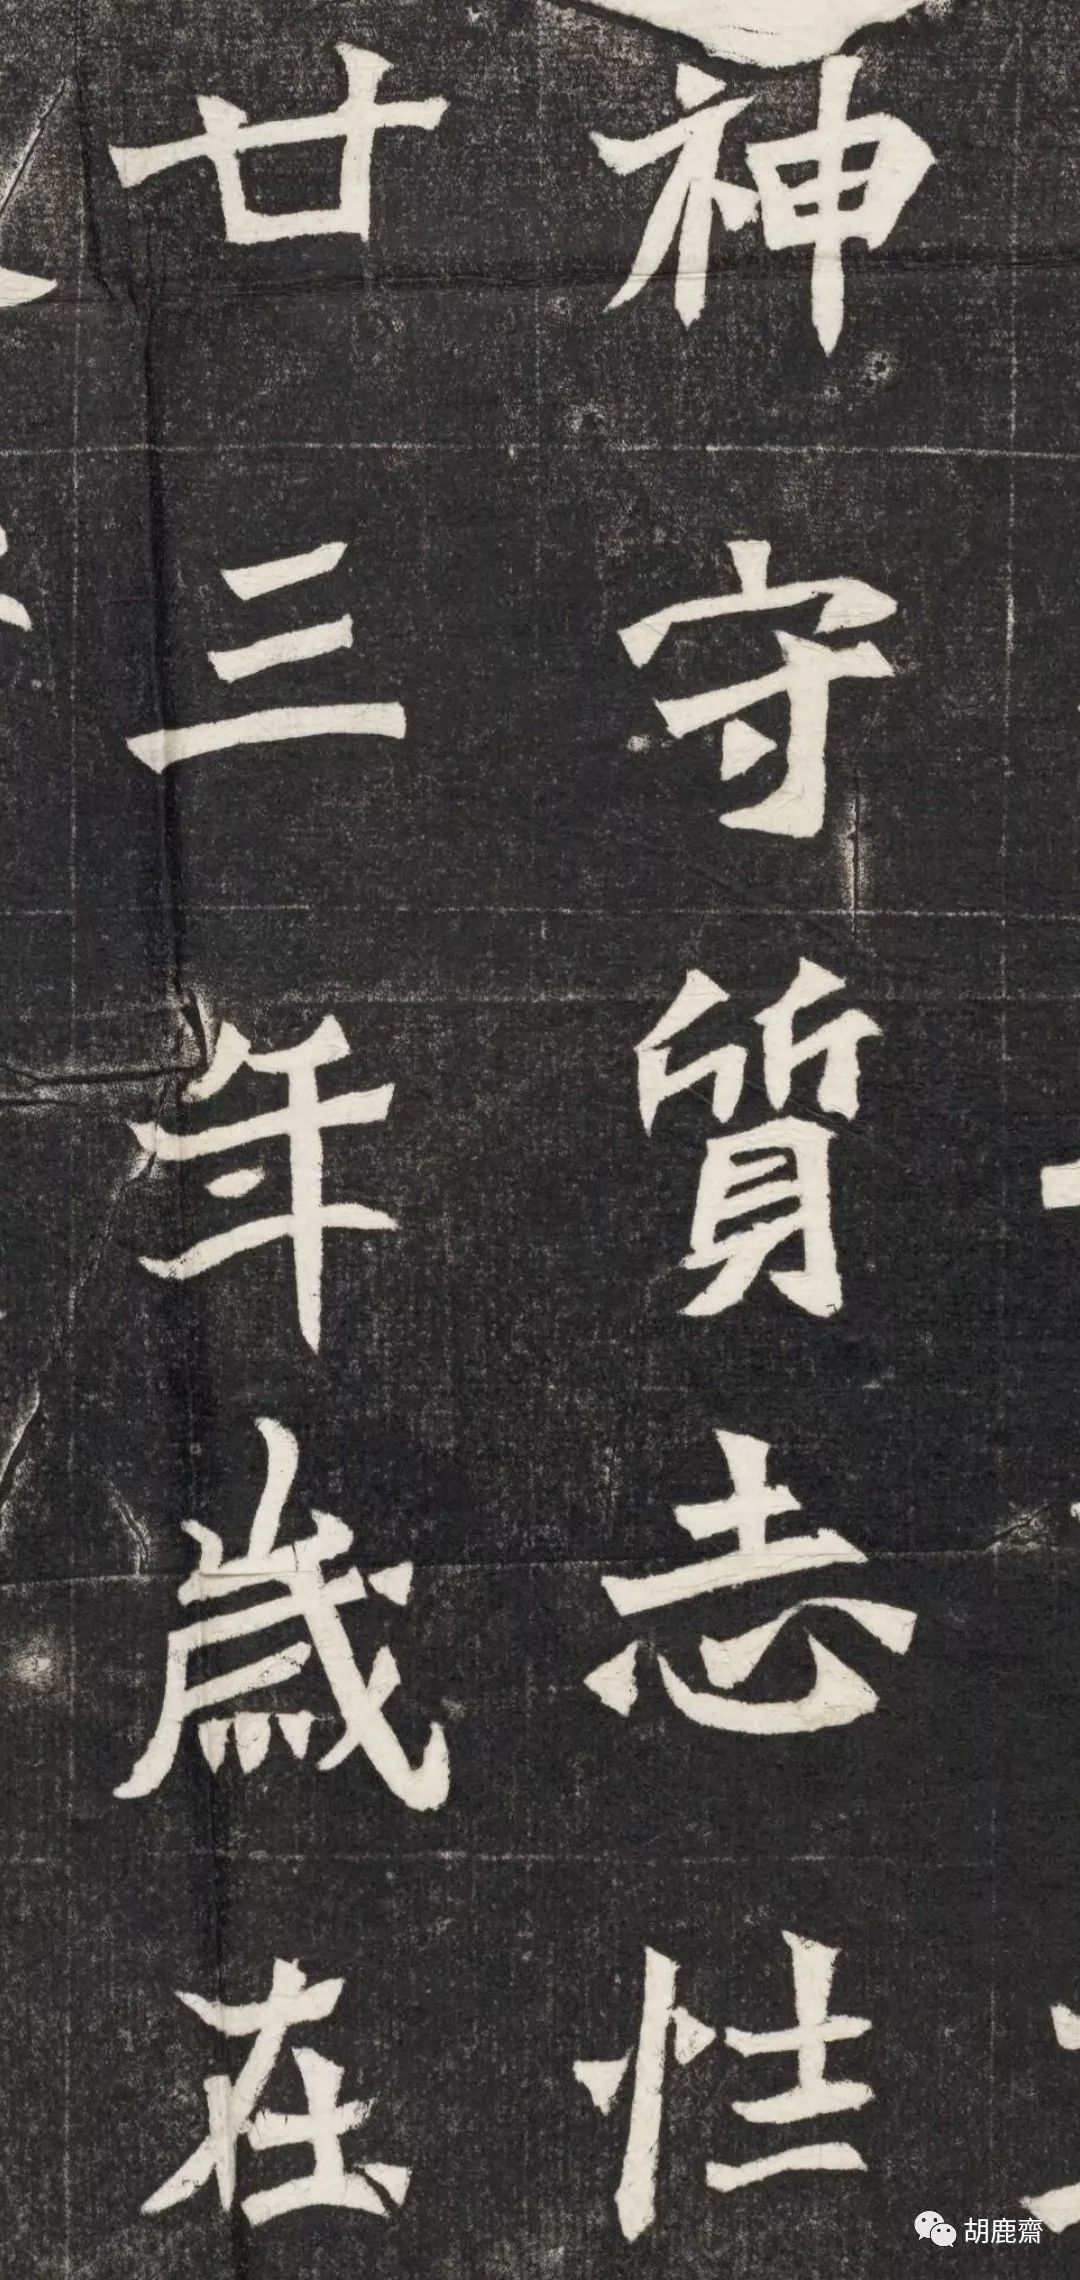 神守質志性
廿三年歲在
胡鹿齋